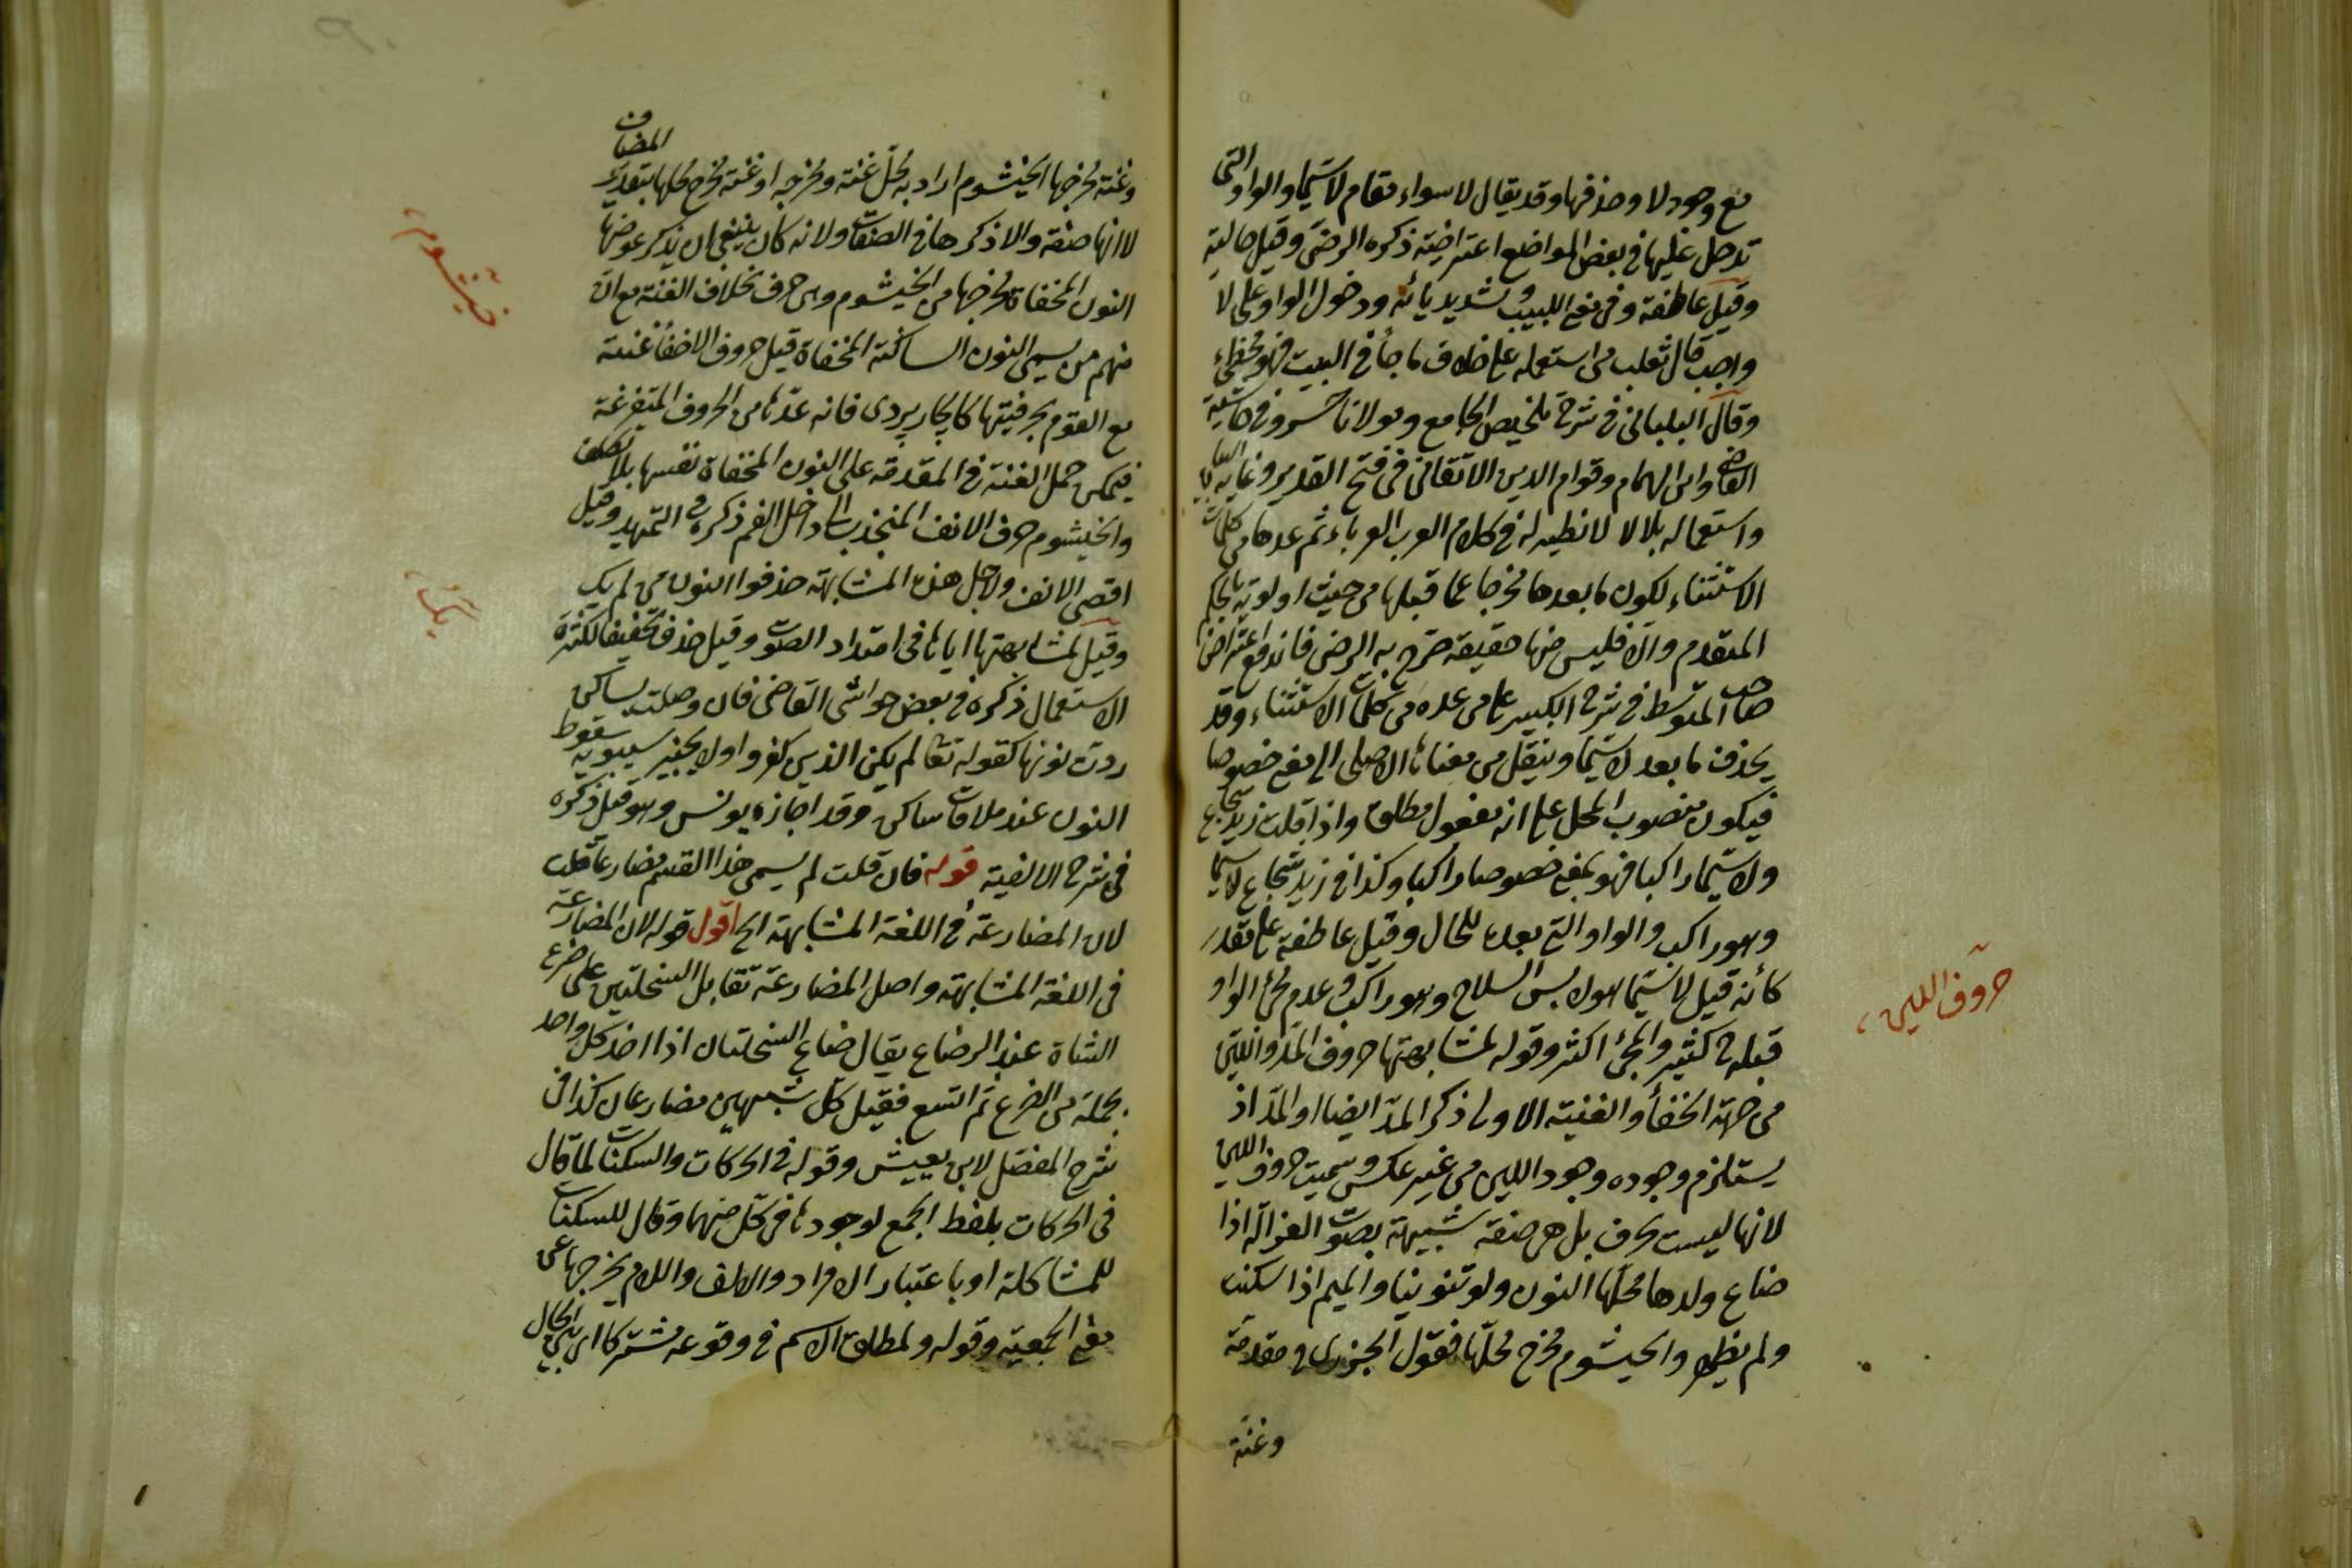 مع وجود لا وحذفها وقد يقال لا سواء مقام لا سيما والواو التى
تدخل عليها فى بعض المواضع اعتراضية ذكره الرضى وقيل حالية
وقيل عاطفة وفى مغنى اللبيب وتشديد يائه ودخول الواو على لا
واجب قال ثعلب من استعمله على خلاف ما جاء فى البيت فهو مخطئ
وقال البلبانى فى شرح تلخيص الجامع ومولانا خسرو فى حاشية
القاضى وابن الهمام وقوام الدين الاتقانى فى فتح القدير وغاية البيان
واستعماله بلا لا لا نظير له فى كلام العرب العرباء ثم عدها من كلمات
الاستثناء لكون ما بعدها مخرجا عما قبلها من حيث اولويته بالحكم
المتقدم والا فليس منها حقيقة صرح به الرضى فاندفع اعتراض
صاحب المتوسط فى شرح الكبير على من عده من كلمات الاستثناء وقد
يحذف ما بعد لا سيما وينقل من معناها الاصلى الى معنى خصوصا
فيكون منصوب المحل على انه مفعول مطلق واذا قلت زيد شجاع
ولا سيما راكبا فهو بمعنى خصوصا راكبا وكذا فى زيد شجاع لا سيما
وهو راكب والواو التى بعده للحال وقيل عاطفة على مقدر
كأنه قيل لا سيما هو لابس السلاح وهو راكب وعدم مجئ الواو
قبله ح كثير والمجئ اكثر وقوله لمشابهتها حروف المد واللين
من جهة الخفأ والغنية الاولى ذكر المد ايضا او المد اذ
يستلزم وجوده وجود اللين من غير عكس وسميت حروف اللين
لانها ليست بحرف بل هى صفة شبيهة بصوت الغزالة اذا
ضاع ولدها محلها النون ولو تنوينا والميم اذا سكنت
ولم يظهر والخيشوم مخرج محلها فقول الجزرى فى مقدمة
وغنة
حروف اللين
وغنة مخرجها الخيشوم اراد به محل غنته ومخرجه او غنة مخرج محلها بتقدير المضاف
لا انها صفة والا ذكرها فى الصفات ولانه كان ينبغى ان يذكر عوضها
النون المخفاة مخرجها من الخيشوم وهى حرف بخلاف الغنة مع ان
منهم من يسمى النون الساكنة المخفاة قبل حروف الاخفأ غنة
مع القوم بحرفيتها كالجاربردى فانه عدها من الحروف المتفرعة
فيمكن حمل الغنة فى المقدمة على النون المخفاة نفسها بلا تكلف
والخيشوم حرف الانف المنجذب الى داخل الفم ذكره فى التمهيد وقيل
اقصى الانف ولاجل هذه المشابهة حذفوا النون من لم يك
وقيل لمشابهتها اياها فى امتداد الصوت وقيل حذف تخفيفا لكثرة
الاستعمال ذكره فى بعض حواشى القاضى فان وصلت بساكن
ردت نونها كقوله تعالى لم يكن الذين كفروا ولا يجيز سيبويه سقوط
النون عند ملاقات ساكن وقد اجازه يونس وهو قيل ذكره
فى شرح الالفية قوله فان قلت لم يسمى هذا القسم مضارعا قلت
لان المضارعة فى اللغة المشابهة الخ اقول قوله لان المضارعة
فى اللغة المشابهة واصل المضارعة تقابل السخلتين على ضرع
الشاة عند الرضاع يقال ضاع السخلتان اذا اخذ كل واحد
بحلمة من الضرع ثم اتسع فقيل كل شبيهين مضارعان كذا فى
شرح المفصل لابن يعيش وقوله فى الحركات والسكنات لما قال
فى الحركات بلفظ الجمع لوجودها فى كل منهما وقال للسكنات
للمشاكلة او باعتبار الافراد والالف واللام يخرجها عن
معنى الجمعية وقوله ولمطلق الاسم فى وقوعه مشتركا اى بين الحال
خيشوم
يك